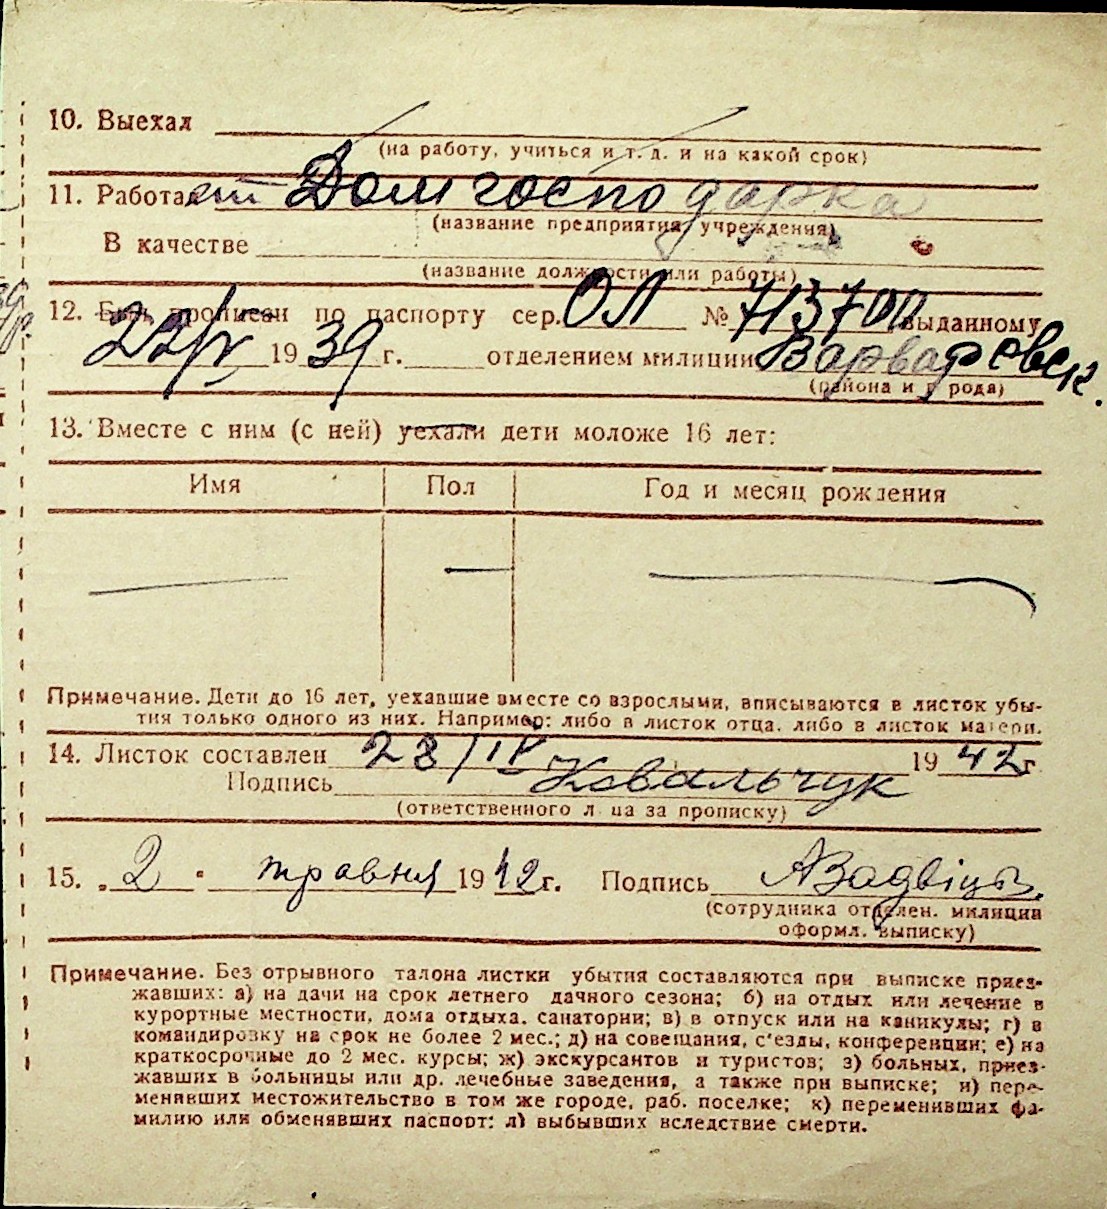 10. Выехал
(на работу, учиться и т. д. и на какой срок)
11. Работает Домгосподарка
(название предприятия, учреждения)
В качестве
(название должности или работы)
12. Был прописан по паспорту сер. ОЛ № 713700 выданному
22/V 1939 г. отделением милиции Варваровск.
(района и города)
13. Вместе с ним (с ней) уехали дети моложе 16 лет:
Имя Пол Год и месяц рождения
Примечание. Дети до 16 лет, уехавшие вместе со взрослыми, вписываются в листок убы-
тия только одного из них. Например: либо в листок отца, либо в листок матери.
14. Листок составлен 28/IV 1942 г
Подпись Ковальчук
(ответственного лица за прописку)
15. „2" травня 1942 г. Подпись
(сотрудника отделен. милиции
оформл. выписку)
Примечание. Без отрывного талона листки убытия составляются при выписке приез-
жавших: а) на дачи на срок летнего дачного сезона; б) на отдых или лечение в
курортные местности, дома отдыха, санатории; в) в отпуск или на каникулы; г) в
командировку на срок не более 2 мес.; д) на совещания, с'езды, конференции; е) на
краткосрочные до 2 мес. курсы; ж) экскурсантов и туристов; з) больных, приез-
жавших в больницы или др. лечебные заведения, а также при выписке; и) пере-
менивших местожительство в том же городе, раб. поселке; к) переменивших фа-
милию или обменявших паспорт; л) выбывших вследствие смерти.